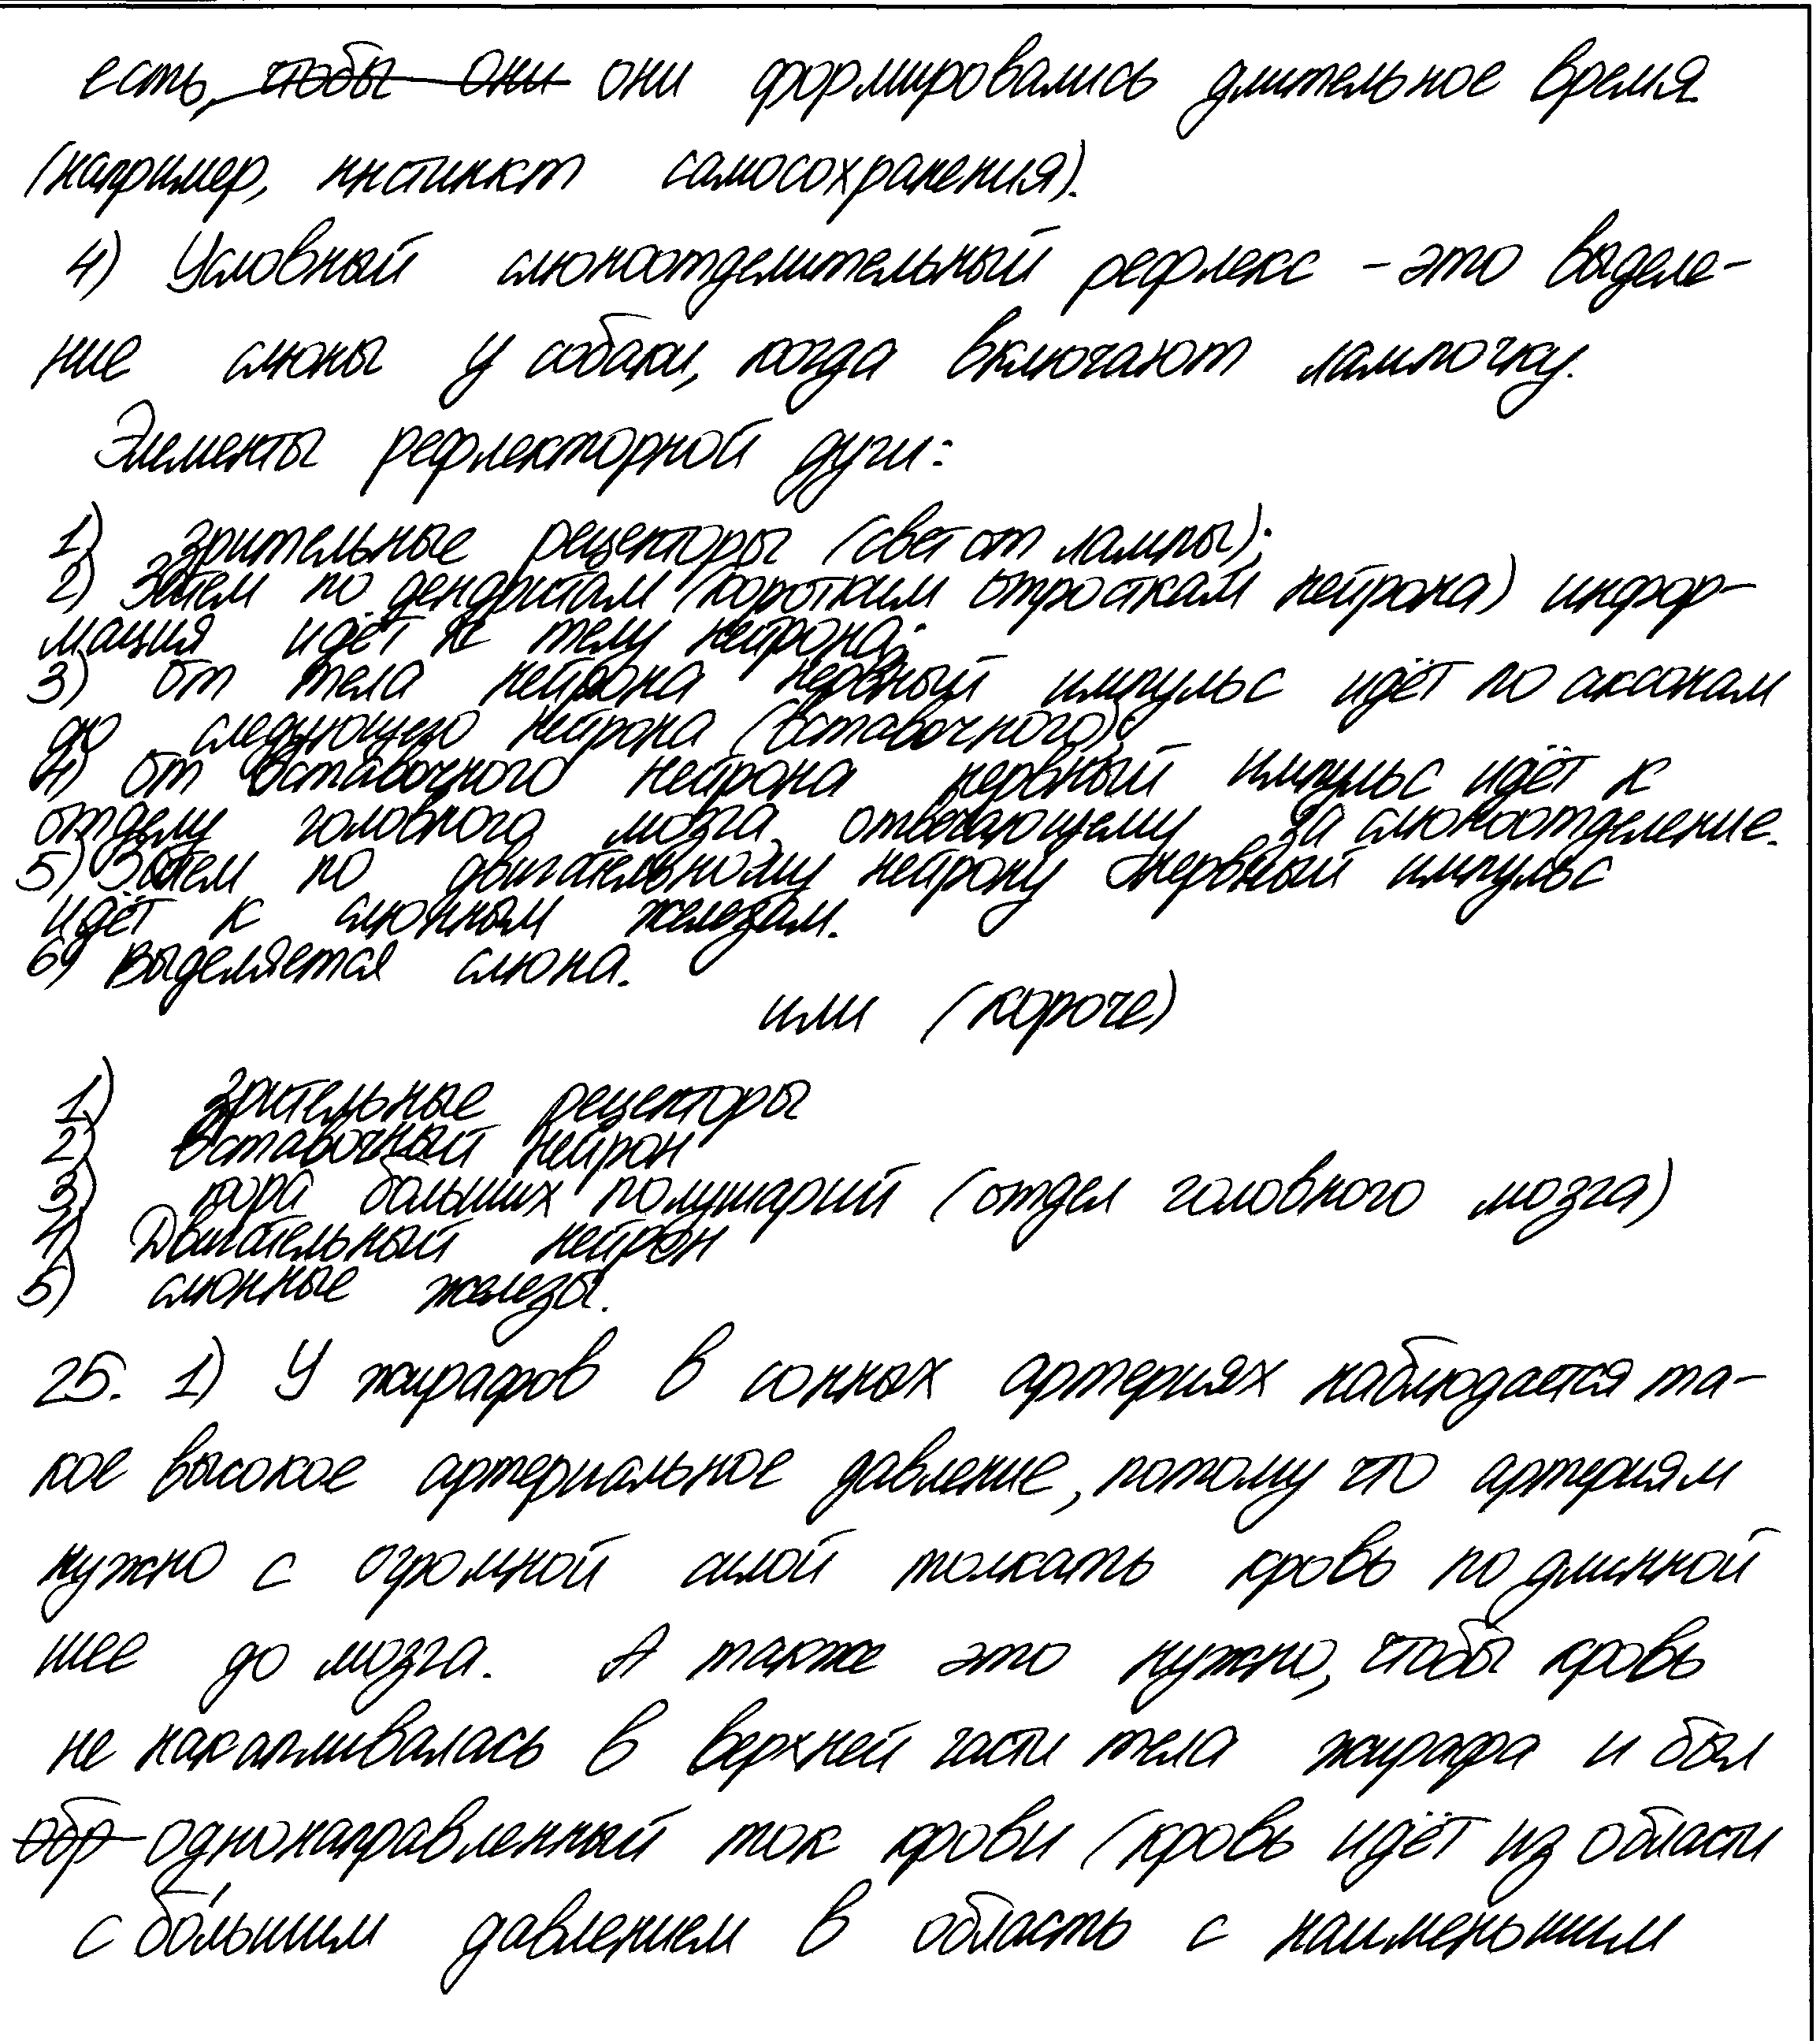 есть, ~~чтобы они~~ они формировались длительное время
(например, инстинкт самосохранения).
4) Условный слюноотделительный рефлекс - это выделе-
ние слюны у собаки, когда включают лампочку.
Элементы рефлекторной дуги:
1) Зрительные рецепторы (свет от лампы);
2) Затем по дендритам (коротким отросткам нейрона) инфор-
мация идёт к телу нейрона;
3) от тела нейрона нервный импульс идёт по аксонам
до следующего нейрона (вставочного);
4) от вставочного нейрона нервный импульс идёт к
отделу головного мозга, отвечающему за слюноотделение.
5) Затем по двигательному нейрону нервный импульс
идёт к слюнным железам.
6) Выделяется слюна.
или (короче)
1) Зрительные рецепторы
2) Вставочный нейрон
3) кора больших полушарий (отдел головного мозга)
4) Двигательный нейрон
5) слюнные железы.
25. 1) У жирафов в сонных артериях наблюдается та-
кое высокое артериальное давление, потому что артериям
нужно с огромной силой толкать кровь по длинной
шее до мозга. А также это нужно, чтобы кровь
не накапливалась в верхней части тела жирафа и был
~~обр~~ однонаправленный ток крови (кровь идёт из области
с бо́льшим давлением в область с наименьшим